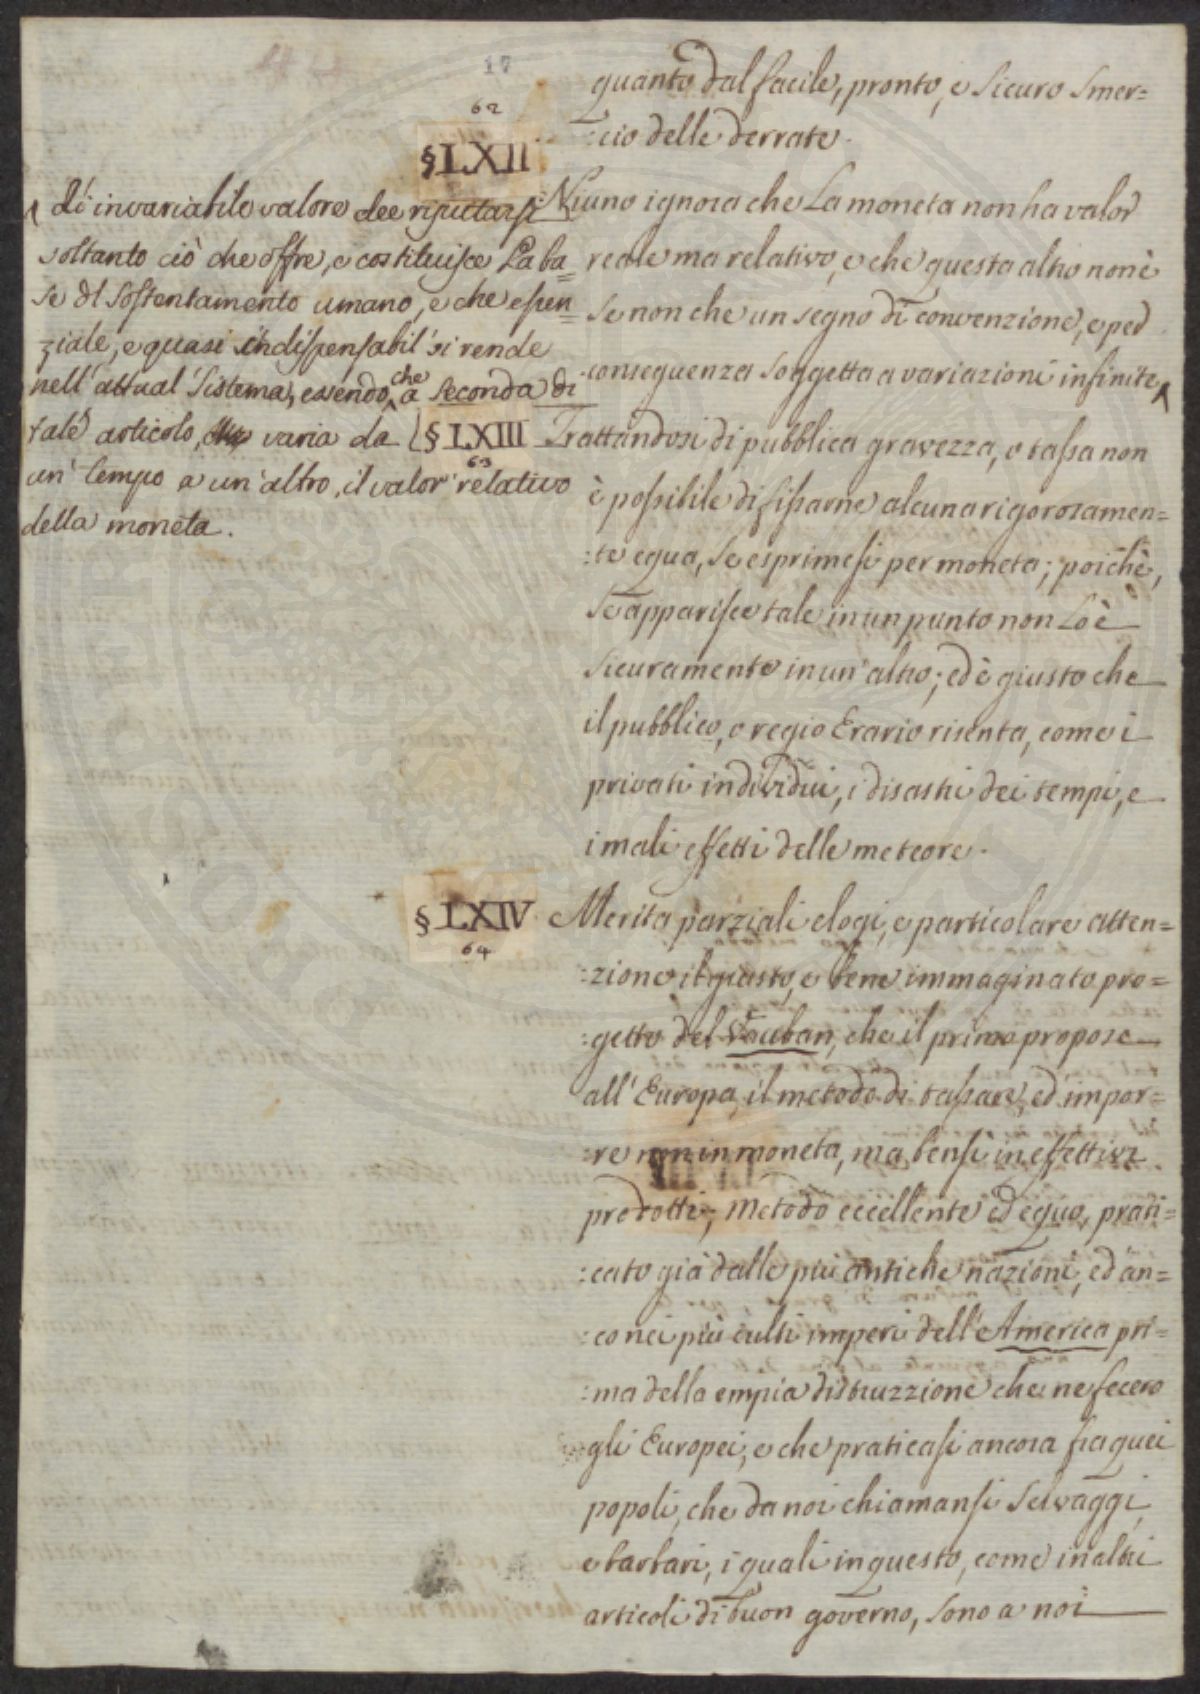 17
quanto dal facile, pronto, e sicuro smer=
:cio delle derrate.
62
§ LXII
Niuno ignora che La moneta non ha valor
reale ma relativo, e che questa altro non è
se non che un segno di convenzione, e per
conseguenza soggetta a variazioni infinite,
di invariabile valore dee riputarsi
soltanto ciò che offre, e costituisce La ba=
se del sostentamento umano, e che essen=
ziale, e quasi indispensabil si rende
nell' attual Sistema, essendo che a seconda di
tale articolo, varia da
un' tempo a un' altro, il valor relativo
della moneta.
§ LXIII
63
Trattandosi di pubblica gravezza, o tassa non
è possibile di fissarne alcuna rigorosamen=
:te equa, se esprimesi per moneta; poichè,
se apparisce tale in un punto non Lo è
sicuramente in un' altro; ed è giusto che
il pubblico, o regio Erario risenta, come i
privati individui, i disastri dei tempi, e
i mali effetti delle meteore.
§ LXIV
64
Merita parziali elogi, e particolare atten=
:zione il giusto, e bene immaginato pro=
:getto del Vauban, che il primo propose
all' Europa il metodo di tassare, ed impor=
:re non in moneta, ma bensì in effettivi
prodotti; metodo eccellente ed equo, prati=
:cato già dalle più antiche nazioni, ed an=
:co nei più culti imperi dell' America pri=
:ma della empia distruzzione che ne fecero
gli Europei, e che praticasi ancora fra quei
popoli, che da noi chiamansi selvaggi,
e barbari, i quali in questo, come in altri
articoli di buon governo, sono a noi